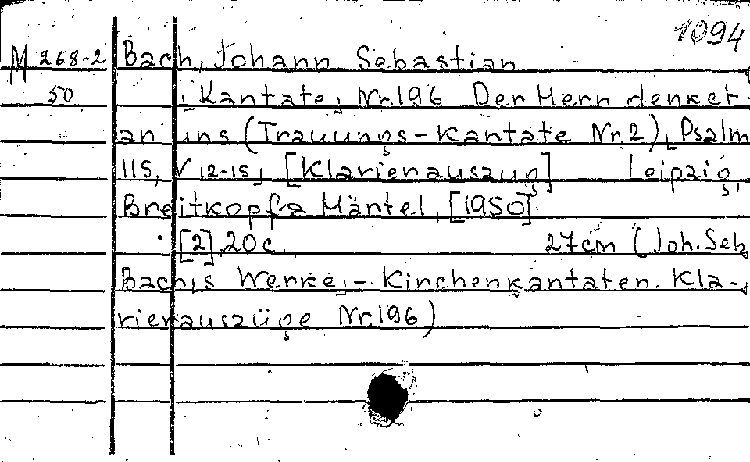 1094
M 268-2 Bach, Johann Sebastian
50 Kantate, Nr.196 Der Herr denket
an uns (Trauungs-Kantate Nr.2), Psalm
115, V 12-15, [Klavierauszug] Leipzig,
Breitkopf & Härtel, [1950]
[2], 20 c. 27cm (Joh. Seb.
Bach,s Werke, - Kirchenkantaten. Kla-
vierauszüge Nr.196)